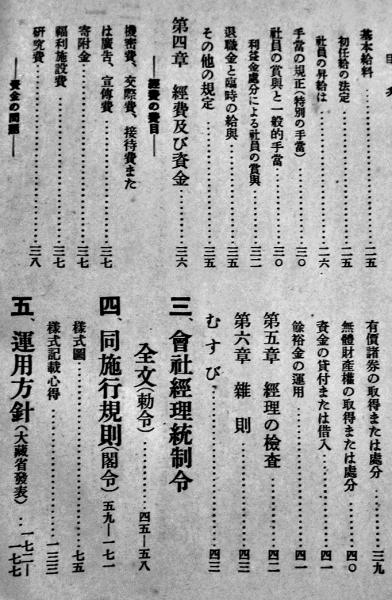 目次
基本給料……二五
初任給の決定……二五
社員の昇給は……二六
手當の規正(特別の手當)……三〇
社員の賞與と一般的手當……三〇
利益金處分による社員の賞與……三二
退職金と臨時の給與……三五
その他の規定……三五
第四章 經費及び資金……三六
――經費の費目――
機密費、交際費、接待費また
は廣告、宣傳費……三七
寄附金……三七
福利施設費……三七
研究費……三八
――資金の問題――
有價諸券の取得または處分……三九
無體財産權の取得または處分……四〇
資金の貸付または借入……四一
餘裕金の運用……四一
第五章 經理の檢査……四二
第六章 雜則……四三
むすび……四三
三、會社經理統制令
全文(勅令)……四五―五八
四、同施行規則(閣令)五九―一七一
樣式圖……七五
樣式記載心得……一三三
五、運用方針(大藏省發表)…一七二―一七七